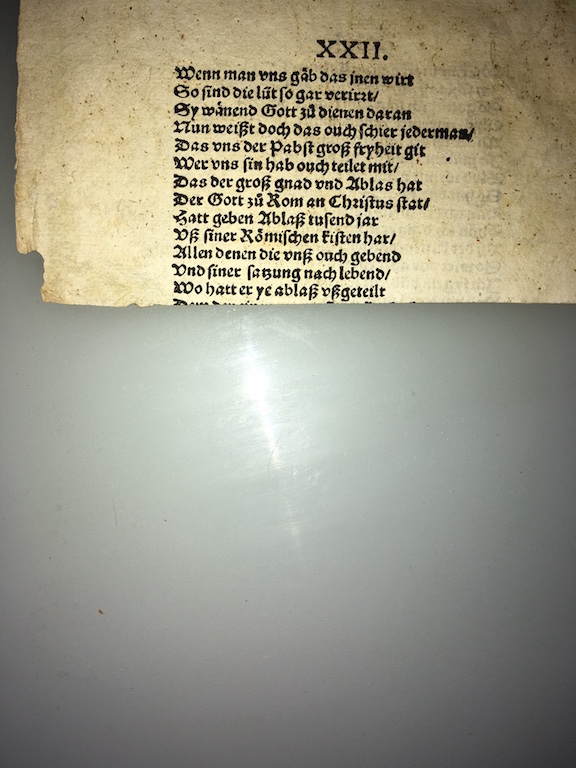 XXII.
Wenn man vns gåb das inen wirt
So sind die lüt so gar verirrt/
Sy wånend Gott zů dienen daran
Nun weißt doch das ouch schier jederman/
Das vns der Pabst groß fryheit git
Wer vns sin hab ouch teilet mit/
Das der groß gnad vnd Ablas hat
Der Gott zů Rom an Christus stat/
Hatt geben Ablaß tusend jar
Vß siner Römischen kisten har/
Allen denen die vnß ouch gebend
Vnd siner satzung nach lebend/
Wo hatt er ye ablaß vßgeteilt